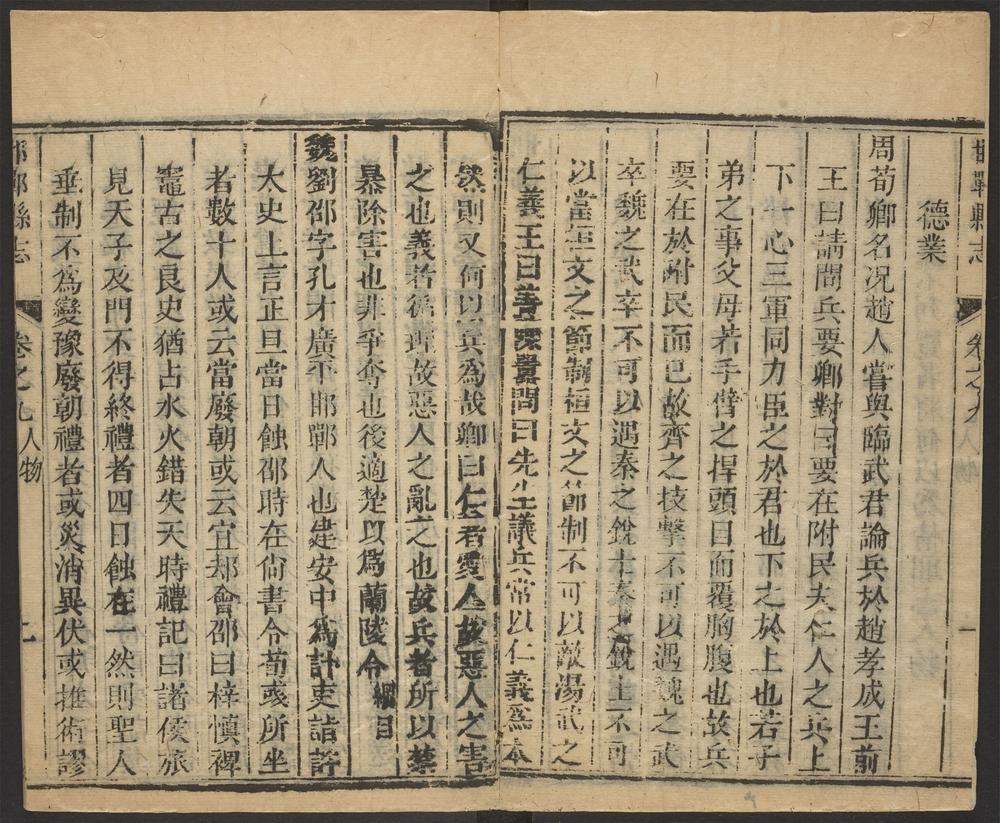 邯鄲縣志
卷之九人物
一
德業
周荀卿名况趙人嘗與臨武君論兵於趙孝成王前
王曰請問兵要卿對曰要在附民夫仁人之兵上
下一心三軍同力臣之於君也下之於上也若子
弟之事父母若手臂之捍頭目而覆胸腹也故兵
要在於附民而已故齊之技擊不可以遇魏之武
卒魏之武卒不可以遇秦之銳士秦之銳士不可
以當桓文之節制桓文之節制不可以敵湯武之
仁義王曰善陳囂問曰先生議兵常以仁義爲本
然則又何以兵爲哉卿曰仁者愛人故惡人之害
之也義者循理故惡人之亂之也故兵者所以禁
暴除害也非爭奪也後適楚以爲蘭陵令綱目
魏劉邵字孔才廣平邯鄲人也建安中爲計吏詣許
太史上言正旦當日蝕邵時在尙書令荀彧所坐
者數十人或云當廢朝或云宜却會邵曰梓慎裨
竈古之良史猶占水火錯失天時禮記曰諸侯旅
見天子及門不得終禮者四日蝕在一然則聖人
垂制不爲變豫廢朝禮者或災消異伏或推術謬
邯鄲縣志
卷之九人物